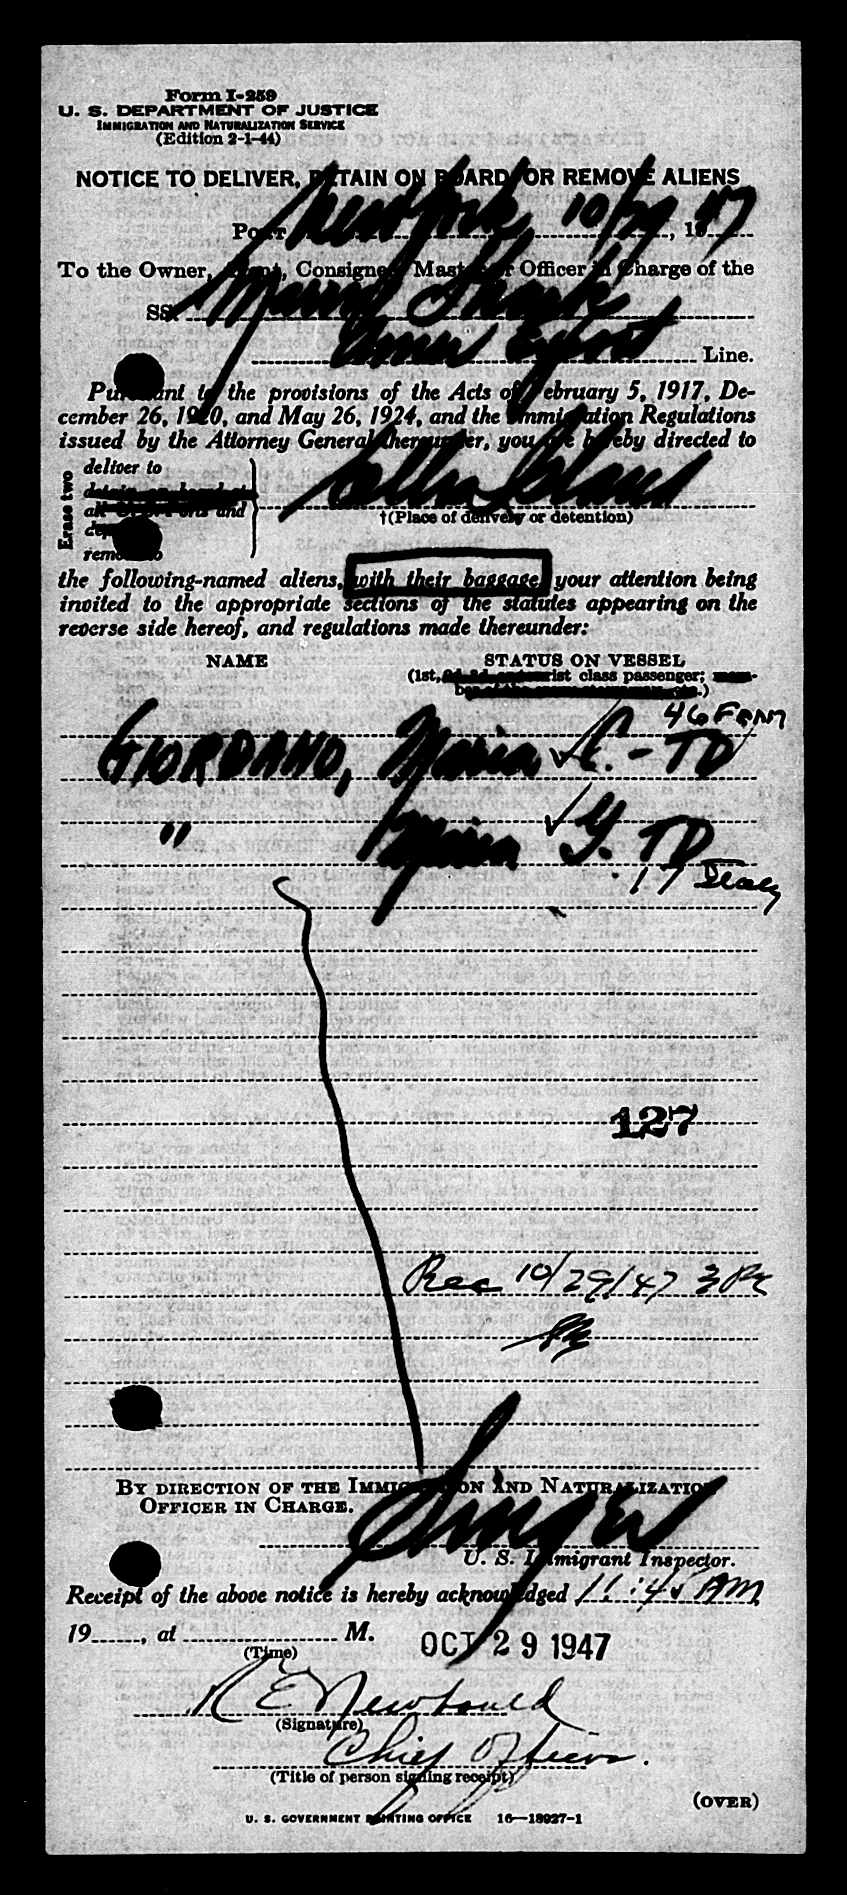 Form I-259
U. S. DEPARTMENT OF JUSTICE
IMMIGRATION AND NATURALIZATION SERVICE
(Edition 2-1-44)
NOTICE TO DELIVER, DETAIN ON BOARD, OR REMOVE ALIENS
Port New York, 10/29, 1947
To the Owner, Agent, Consignee, Master, or Officer in Charge of the
SS. Marine Shark
Amer Export Line.
Pursuant to the provisions of the Acts of February 5, 1917, De-
cember 26, 1920, and May 26, 1924, and the Immigration Regulations
issued by the Attorney General thereunder, you are hereby directed to
Erase two
deliver to
detain on board at
all U. S. Ports and
remove to
Ellis Island
†(Place of delivery or detention)
the following-named aliens, with their baggage, your attention being
invited to the appropriate sections of the statutes appearing on the
reverse side hereof, and regulations made thereunder:
NAME STATUS ON VESSEL
(1st, tourist class passenger; mem-
46 Fem
GIORDANO, Maria ✓ C. - TD
" Maria ✓ G. TD
17 Italy
127
Rec 10/29/47 3 PM
BY DIRECTION OF THE IMMIGRATION AND NATURALIZATION
OFFICER IN CHARGE.
Singer
U. S. Immigrant Inspector.
Receipt of the above notice is hereby acknowledged 11:45 AM
19......, at .................... M. OCT 29 1947
(Time)
R E Newbould
(Signature)
Chief Officer.
(Title of person signing receipt)
(OVER)
U. S. GOVERNMENT PRINTING OFFICE 16—18927-1